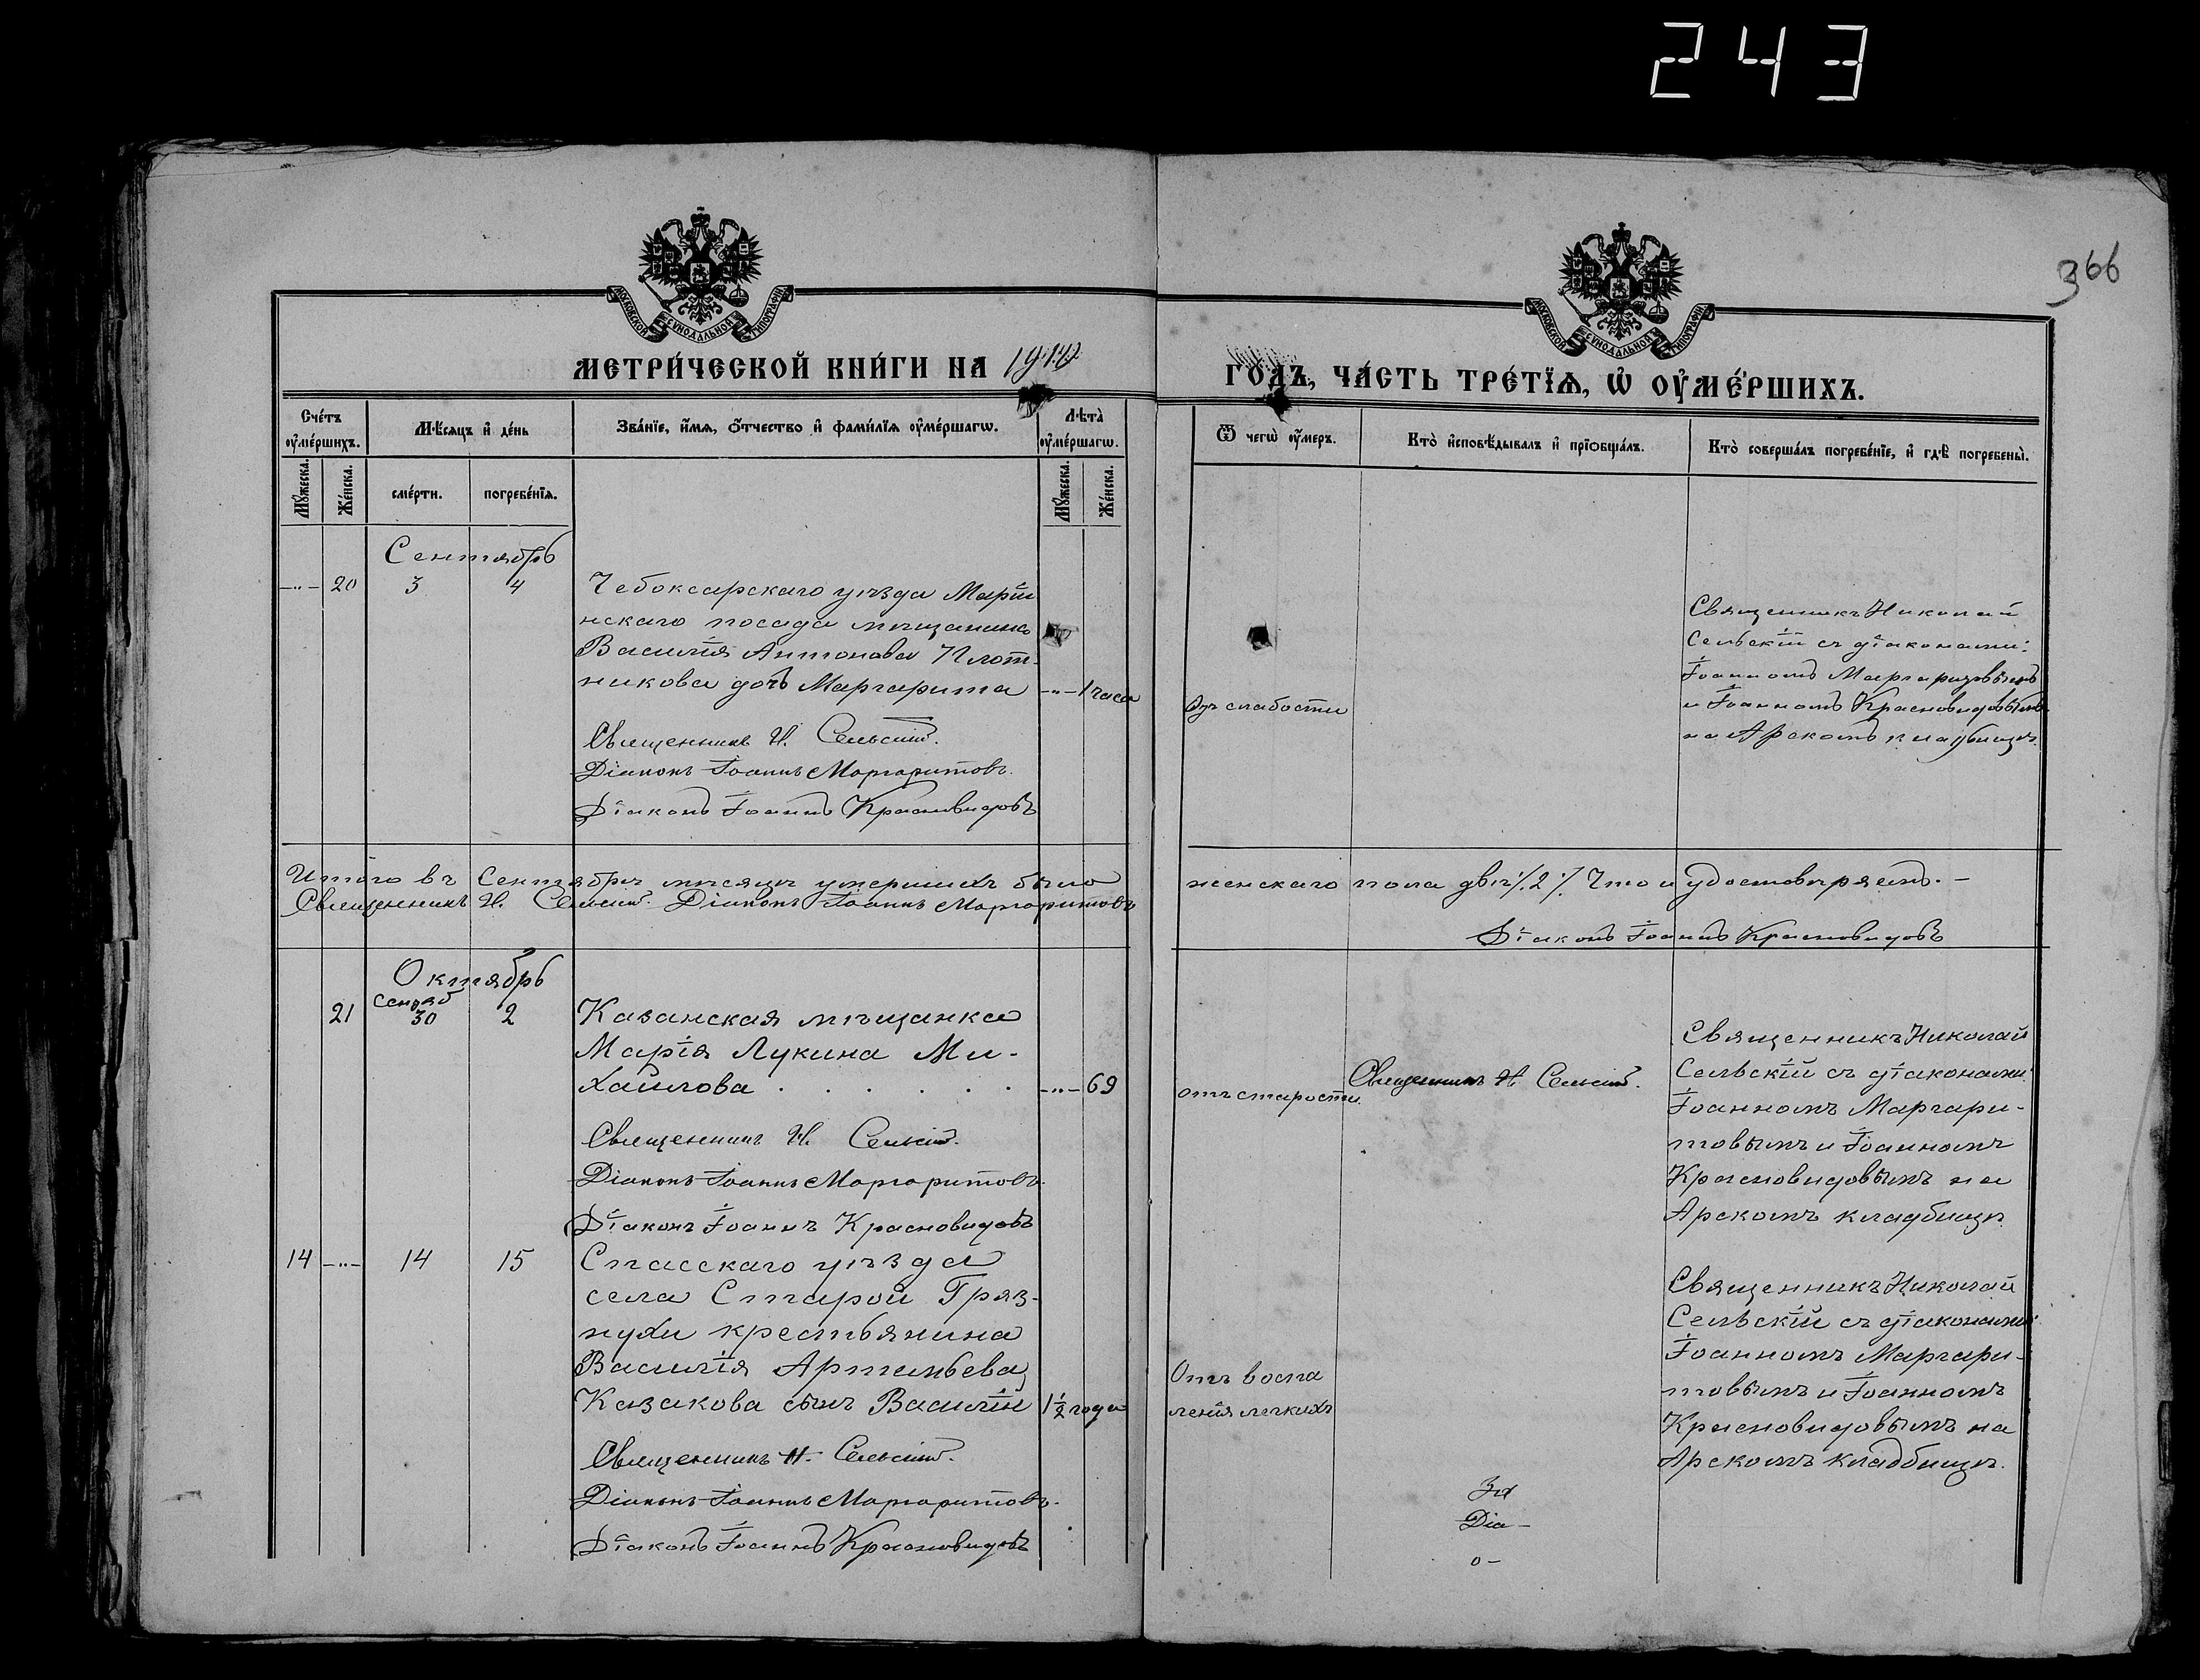 243
366
МОСКОВСКОЙ СѴНОДАЛЬНОЙ ТИПОГРАФІИ
МОСКОВСКОЙ СѴНОДАЛЬНОЙ ТИПОГРАФІИ
МЕТРИ́ЧЕСКОЙ КНИ́ГИ НА
ГО́ДЪ, ЧА́СТЬ ТРЕ́ТЇѦ, Ѡ҆ ОУ҆МЕ́РШИХЪ.
Сче́тъ оу҆ме́ршихъ.
Мѣ́сяцъ и҆ де́нь
Зва́нїе, и҆́мѧ, ѻ҆́тчество и҆ фами́лїѧ оу҆ме́ршагѡ.
Лѣ́та оу҆ме́ршагѡ.
Ѿ чегѡ̀ оу҆́меръ.
Кто̀ и҆сповѣ́дывалъ и҆ прїѻбща́лъ.
Кто̀ соверша́лъ погребе́нїе, и҆ гдѣ̀ погребены̀.
Мꙋ́жеска.
Же́нска.
сме́рти.
погребе́нїѧ.
Мꙋ́жеска.
Же́нска.
Сентябрь
-"- 20 3 4
Чебоксарскаго уѣзда Маріи
нскаго посада мѣщанина
Василія Антонова Плот-
никова дочь Маргарита -"- 1 часа
Священникъ Н. Сельскій.
Діаконъ Іоаннъ Маргаритовъ.
Діаконъ Іоаннъ Красновидовъ
слабости
Священникъ Николай
Сельскій съ діаконами:
Іоанномъ Маргаритовымъ
и Іоанномъ Красновидовымъ
на Арскомъ кладбищѣ.
Итого въ Сентябрѣ мѣсяцѣ умершихъ было женскаго пола двѣ ./. 2 ./. Что и удостовѣряемъ. -
Священникъ Н. Сельскій. Діаконъ Іоаннъ Маргаритовъ
Діаконъ Іоаннъ Красновидовъ
Октябрь
сентяб
21 30 2
Казанская мѣщанка
Марія Лукина Ми-
хайлова . . . . . -"- 69
Священникъ Н. Сельскій.
Діаконъ Іоаннъ Маргаритовъ.
Діаконъ Іоаннъ Красновидовъ
отъ старости.
Священникъ Н. Сельскій.
Священникъ Николай
Сельскій съ діаконами:
Іоанномъ Маргари-
товымъ и Іоанномъ
Красновидовымъ на
Арскомъ кладбищѣ
14 -"- 14 15
Спасскаго уѣзда
села Старой Гряз-
нухи крестьянина
Василія Артемьева
Казакова сынъ Василій 1½ года
Священникъ Н. Сельскій.
Діаконъ Іоаннъ Маргаритовъ.
Діаконъ Іоаннъ Красновидовъ
Отъ воспа
ленія легкихъ
Священникъ Николай
Сельскій съ діаконами:
Іоанномъ Маргари-
товымъ и Іоанномъ
Красновидовымъ на
Арскомъ кладбищѣ.
Діа-
о-